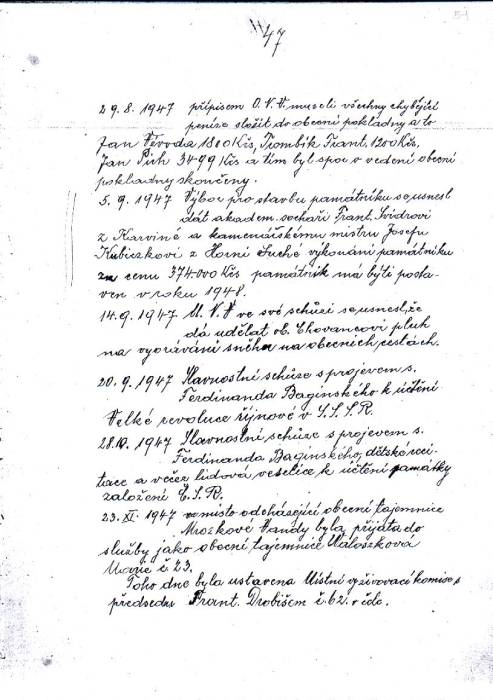 47
29.8. 1947 přípisem O.V.V. museli všechny chybějící
peníze složit do obecní pokladny a to
Jan Vévoda 1800 Kčs, Trombík Frant. 1200 Kčs,
Jan Pich 3499 Kčs a tím byl spor o vedení obecní
pokladny skončeny.
5.9. 1947 Výbor pro stavbu památníku se usnesl
dát akadem. sochaři Frant. Svidrovi
z Karviné a kamenářskému mistru Josefu
Kubiczkovi z Horní Suché vykonání památníku
za cenu 374.000 Kčs památník má býti posta-
ven v roku 1948.
14.9. 1947 M.V.V ve své schůzi se usnesl, že
dá udělat ob. Chovancovi pluh
na vyorávání sněhu na obecních cestách.
20.9. 1947 Slavnostní schůze s projevem s.
Ferdinanda Baginského k účtění
Velké revoluce říjnové v S.S.S.R.
28.10. 1947 Slavnostní schůze s projevem s.
Ferdinanda Baginského, dětské reci
tace a večer lidová veselice k účtění památky
založení Č.S.R.
23. XI. 1947 na místo odcházející obecní tajemnice
Mrozkové Vandy byla přijáta do
služby jako obecní tajemnice Waloszková
Marie č. 23.
Toho dne byla ustavena Místní vyživovací komise s
předsedou Frant. Drobišem č. 62. v čele.